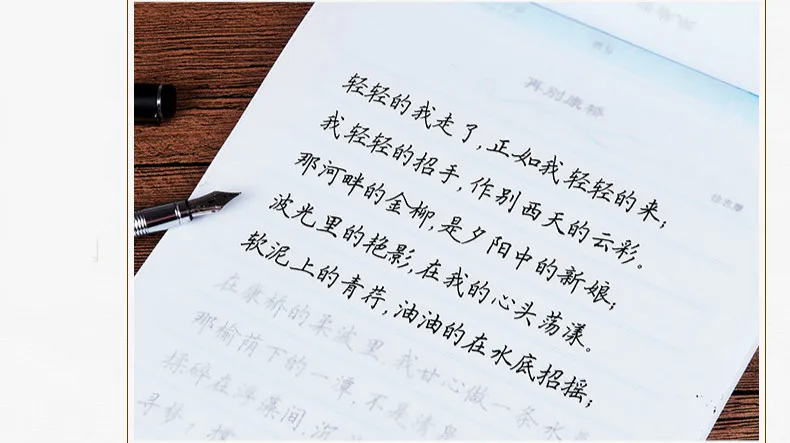 再别康桥
徐志摩
轻轻的我走了,正如我轻轻的来;
我轻轻的招手,作别西天的云彩。
那河畔的金柳,是夕阳中的新娘;
波光里的艳影,在我的心头荡漾。
软泥上的青荇,油油的在水底招摇;
在康桥的柔波里,我甘心做一条水
那榆荫下的一潭,不是清泉
揉碎在浮藻间,沉
寻梦?撑